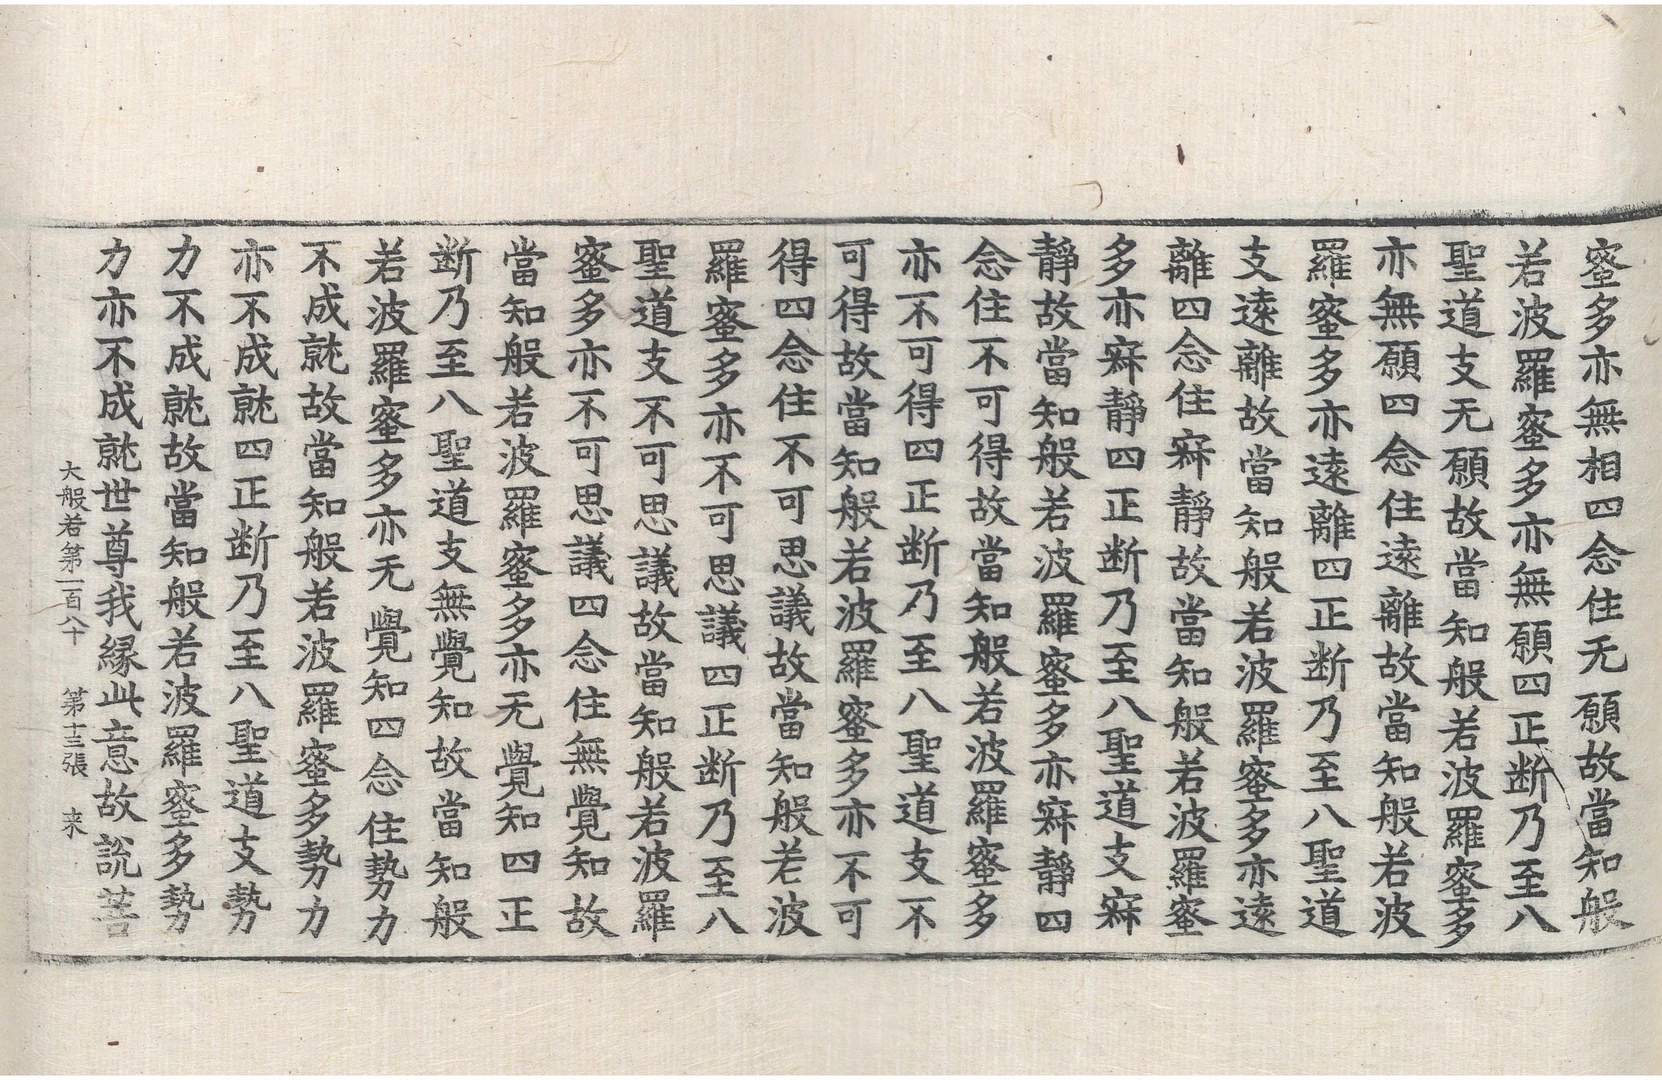 蜜多亦無相四念住无願故當知般
若波羅蜜多亦無願四正断乃至八
聖道支无願故當知般若波羅蜜多
亦無願四念住遠離故當知般若波
羅蜜多亦遠離四正断乃至八聖道
支遠離故當知般若波羅蜜多亦遠
離四念住寂靜故當知般若波羅蜜
多亦寂靜四正断乃至八聖道支寂
靜故當知般若波羅蜜多亦寂靜四
念住不可得故當知般若波羅蜜多
亦不可得四正断乃至八聖道支不
可得故當知般若波羅蜜多亦不可
得四念住不可思議故當知般若波
羅蜜多亦不可思議四正断乃至八
聖道支不可思議故當知般若波羅
蜜多亦不可思議四念住無覺知故
當知般若波羅蜜多亦无覺知四正
断乃至八聖道支無覺知故當知般
若波羅蜜多亦无覺知四念住勢力
不成就故當知般若波羅蜜多勢力
亦不成就四正断乃至八聖道支勢
力不成就故當知般若波羅蜜多勢
力亦不成就世尊我緣此意故說菩
大般若第一百八十 第十三張 来